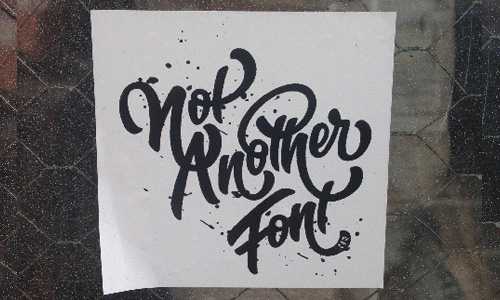 Not
Another
Font